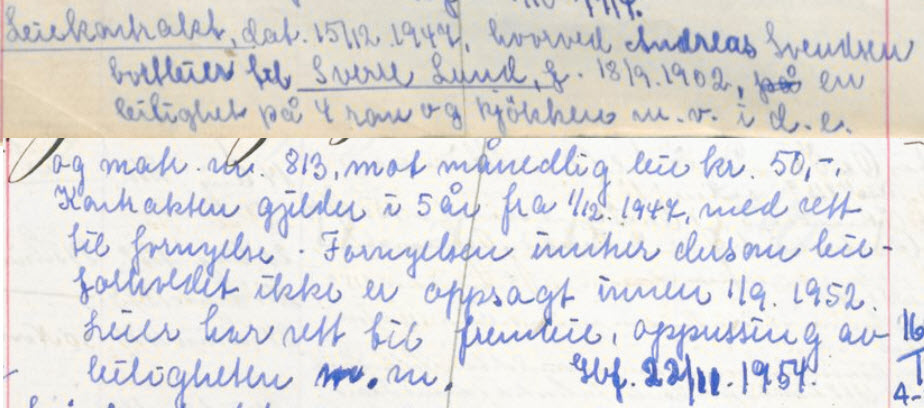 Leiekontrakt, dat. 15/12.1947, hvorved Andreas Svendsen
bortleier til Sverre Lund, f. 18/9.1902, på en
leilighet på 4 rom og kjökken m.v. i d.e.
og matr. nr. 813, mot månedlig leie kr. 50,-.
Kontrakten gjelder i 5 år fra 1/12.1947, med rett
til fornyelse. Fornyelsen inntrer dersom leie-
forholdet ikke er oppsagt innen 1/9.1952.
Leier har rett til fremleie, oppussing av
leiligheten m.m. Tgl. 22/11.1954.
16
4-